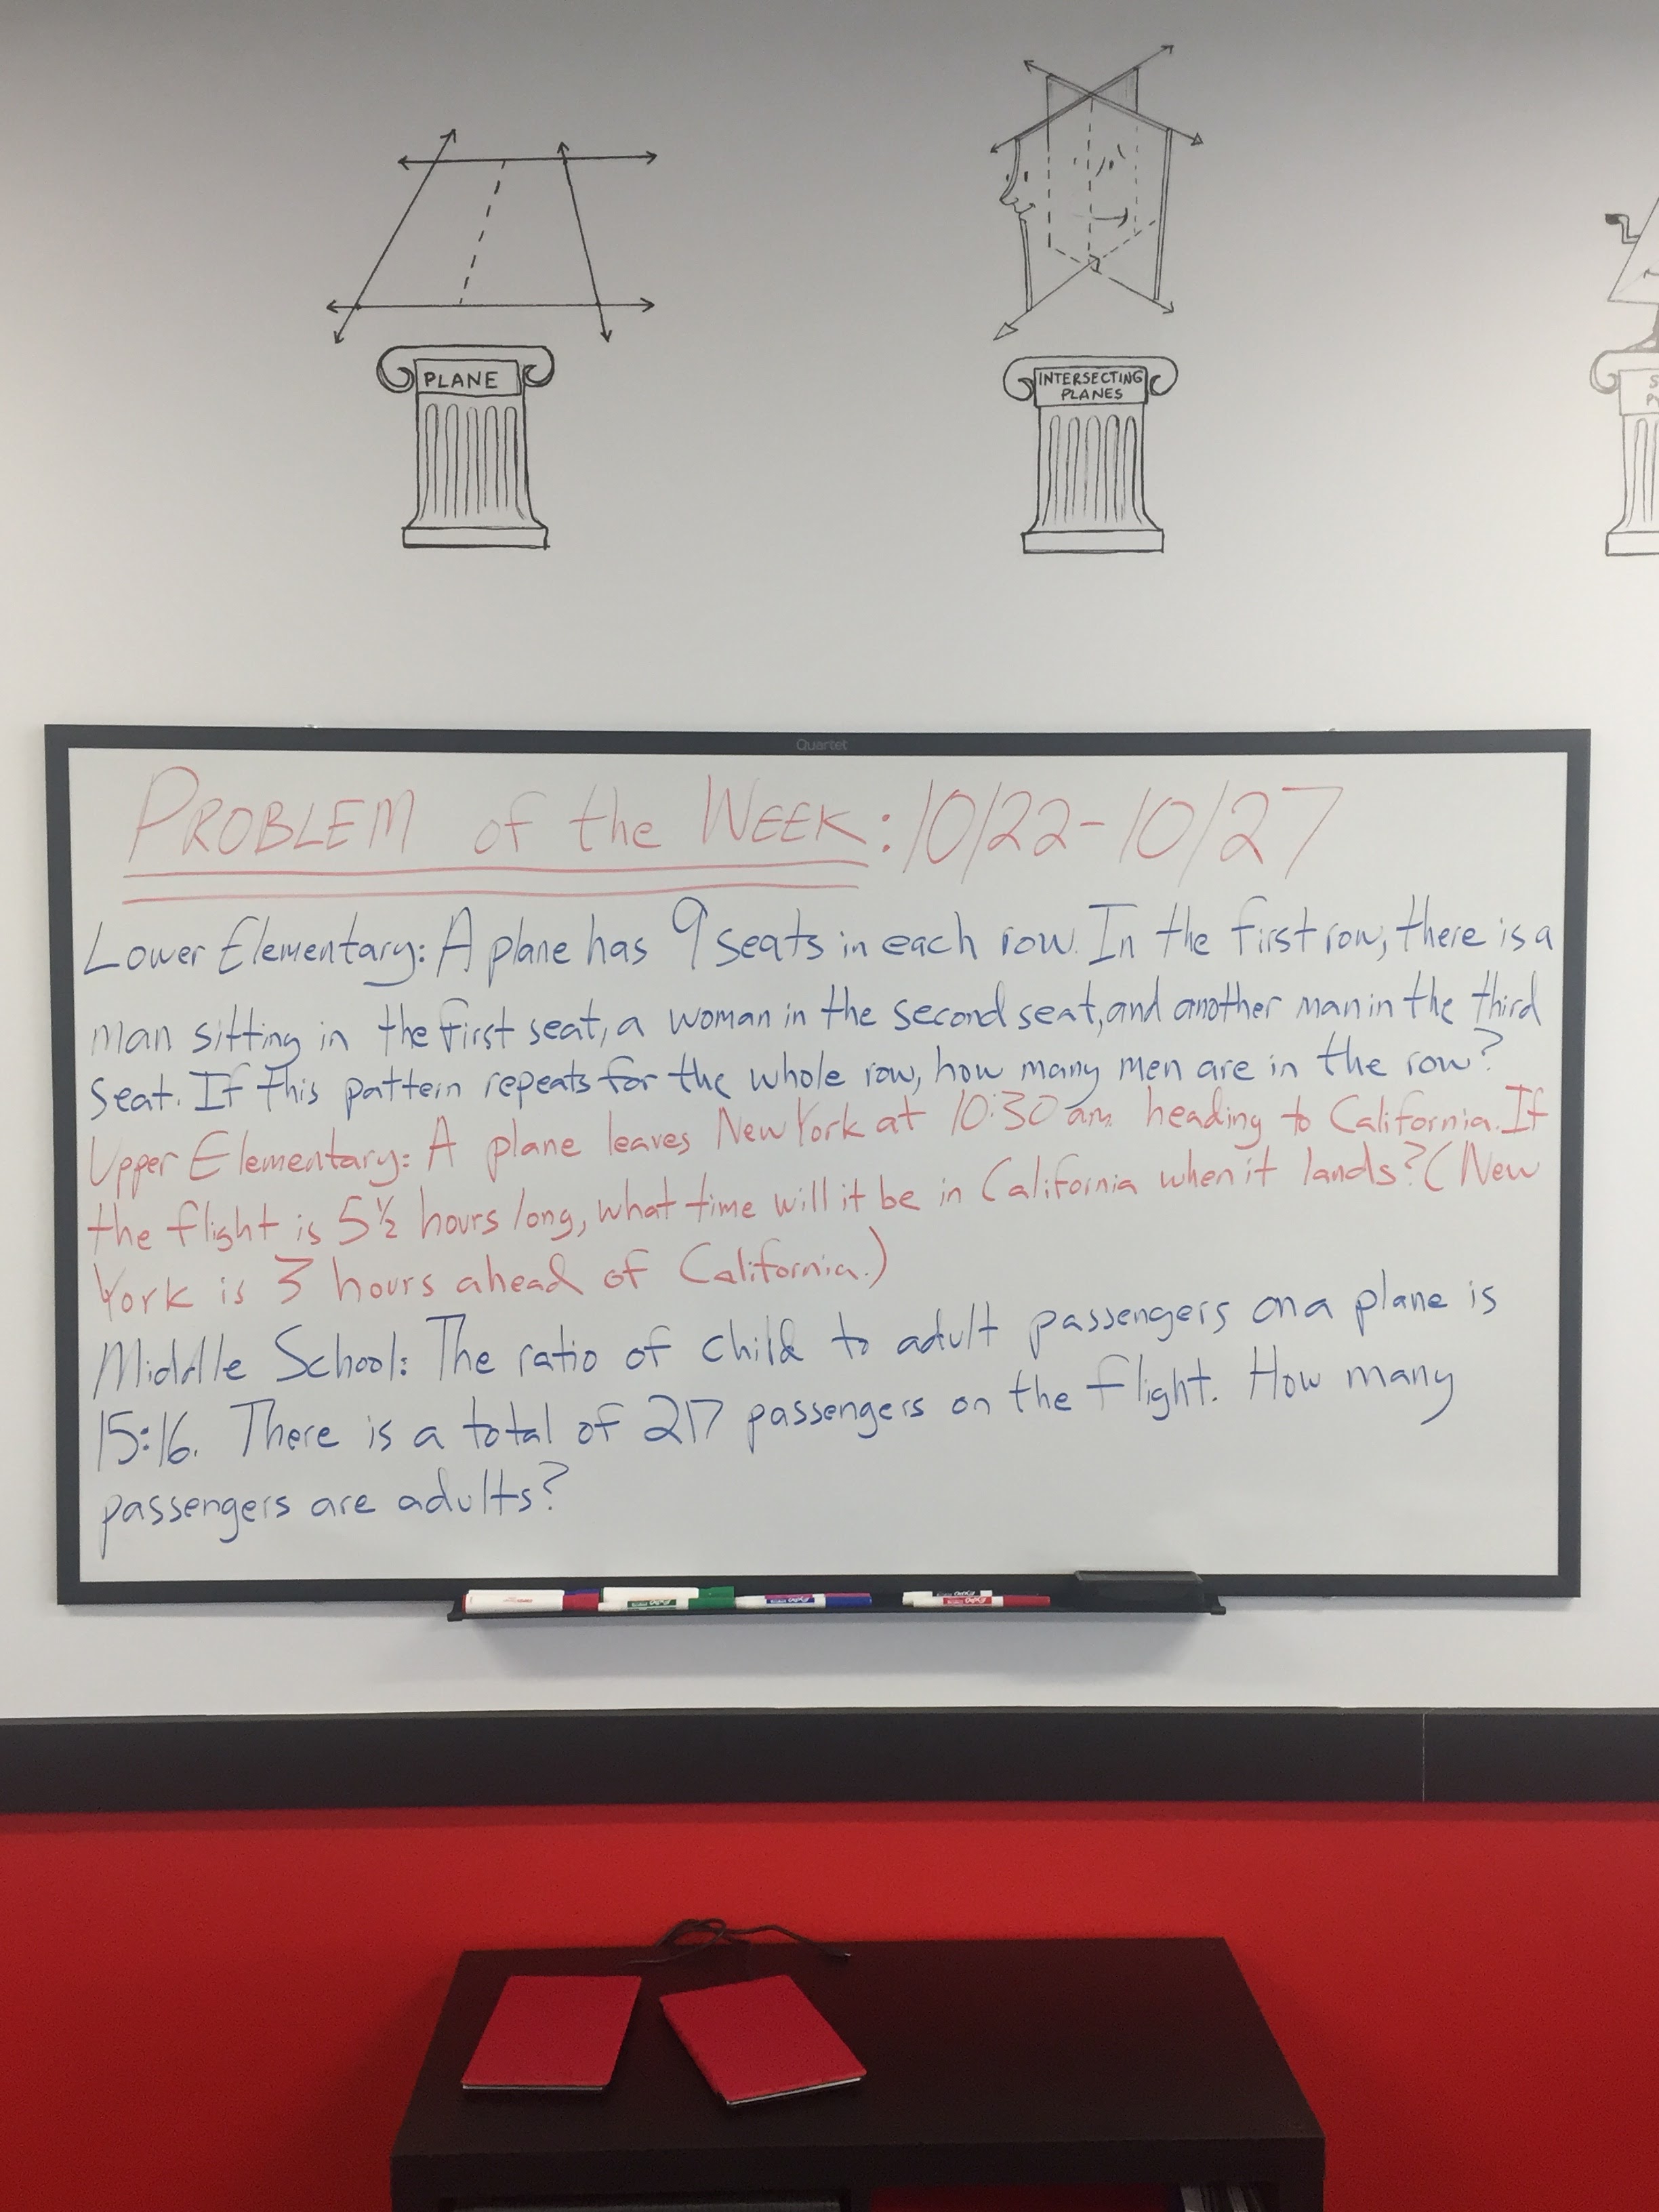 PLANE
INTERSECTING
PLANES
Quartet
PROBLEM of the WEEK: 10/22-10/27
Lower Elementary: A plane has 9 seats in each row. In the first row, there is a
man sitting in the first seat, a woman in the second seat, and another man in the third
seat. If this pattern repeats for the whole row, how many men are in the row?
Upper Elementary: A plane leaves New York at 10:30 am heading to California. If
the flight is 5 ½ hours long, what time will it be in California when it lands? (New
York is 3 hours ahead of California.)
Middle School: The ratio of child to adult passengers on a plane is
15:16. There is a total of 217 passengers on the flight. How many
passengers are adults?
EXPO
EXPO
EXPO
EXPO